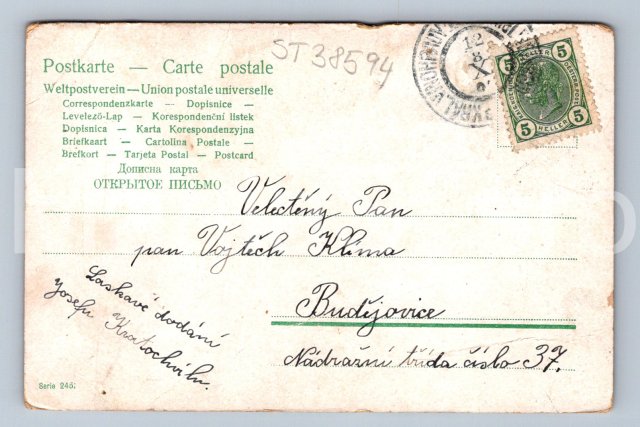 Postkarte — Carte postale
Weltpostverein — Union postale universelle
Correspondenzkarte — Dopisnice —
Levelező-Lap — Korespondenční listek
Dopisnica — Karta Korespondenzyjna
Briefkaart — Cartolina Postale —
Brefkort — Tarjeta Postal — Postcard
Дописна карта
ОТКРЫТОЕ ПИСЬМО
ST38594
12
5 5
5 5
HELLER
Velectěný Pan
pan Vojtěch Klíma
Budějovice
Nádražní třída číslo 37.
Laskavé dodání
Josefu Kratochvílu.
Serie 245.